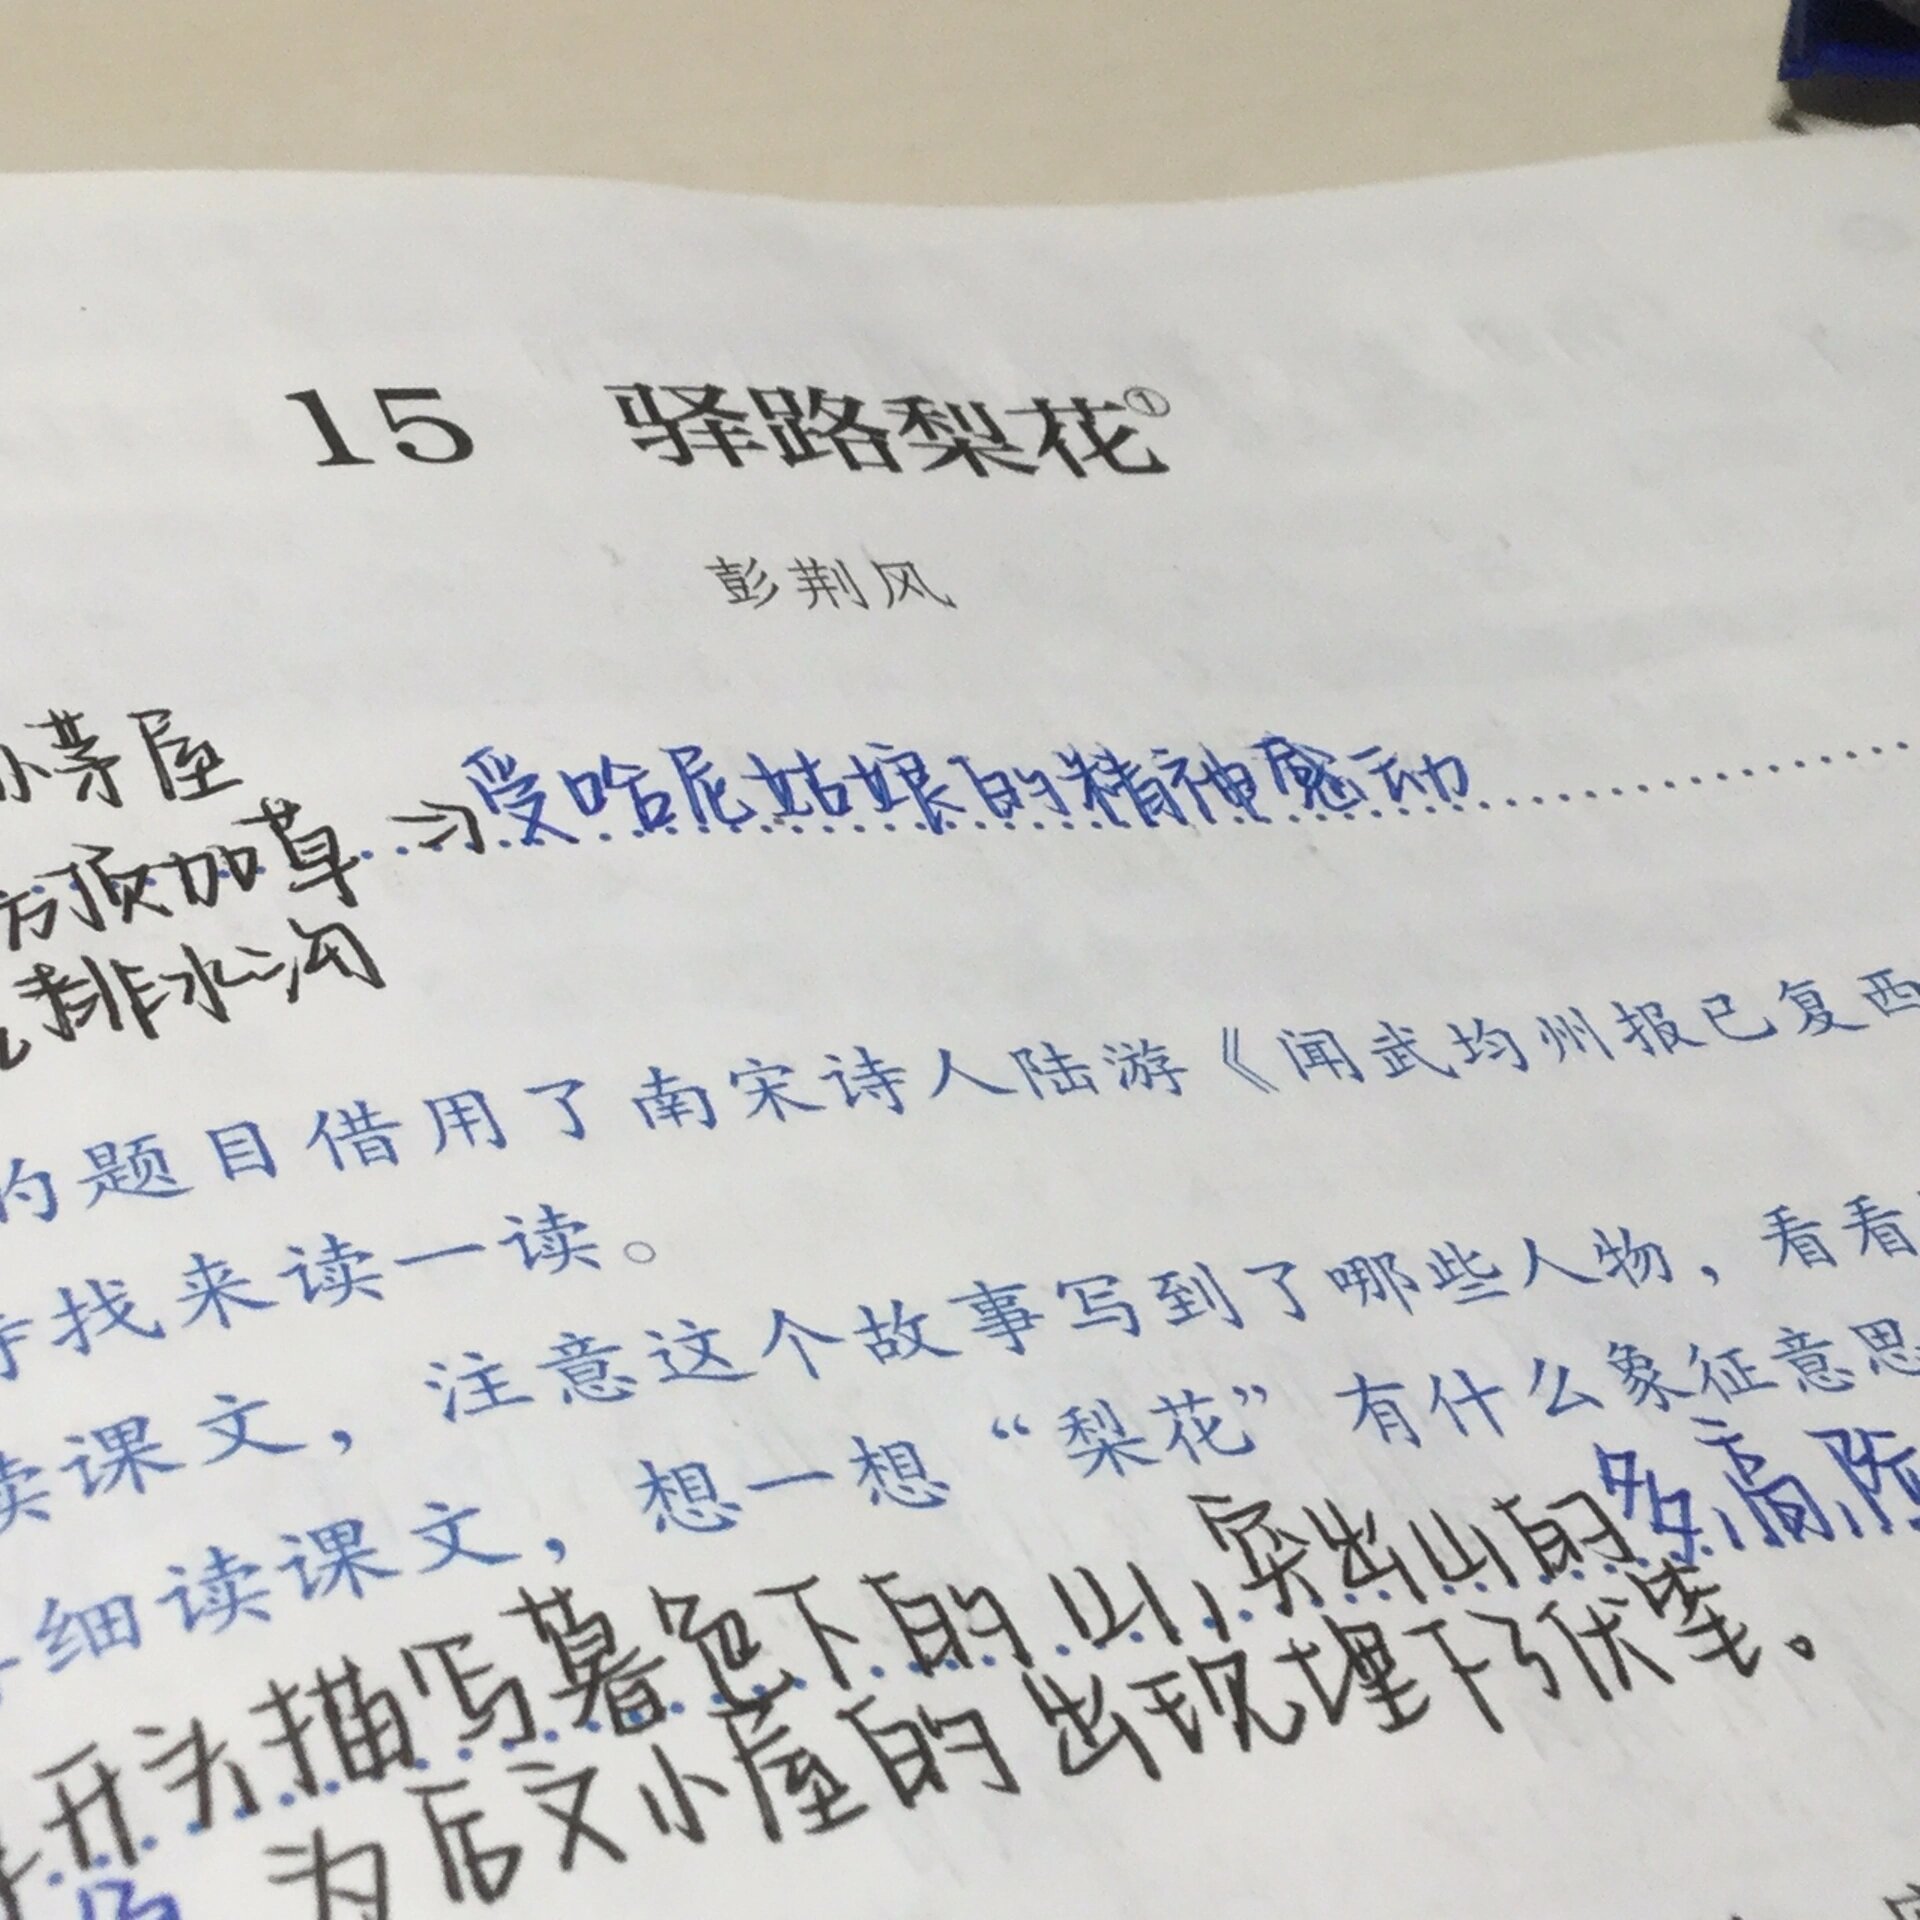 15 驿路梨花①
彭荆风
小茅屋
房顶加草 → 受哈尼姑娘的精神感动
排水沟
的题目借用了南宋诗人陆游《闻武均州报已复西
找来读一读。
读课文，注意这个故事写到了哪些人物，看看
细读课文，想一想“梨花”有什么象征意思
开头描写暮色下的山，突出山的多、高、险
为后文小屋的出现埋下了伏笔。